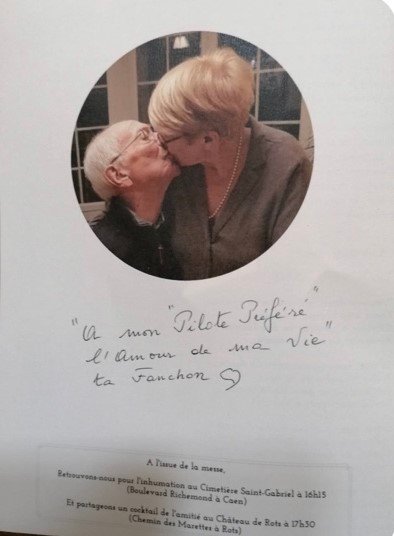 "A mon "Pilote Préféré"
l'Amour de ma Vie"
ta Fanchon
A l'issue de la messe,
Retrouvons-nous pour l'inhumation au Cimetière Saint-Gabriel à 16h15
(Boulevard Richemond à Caen)
Et partageons un cocktail de l'amitié au Château de Rots à 17h30
(Chemin des Marettes à Rots)